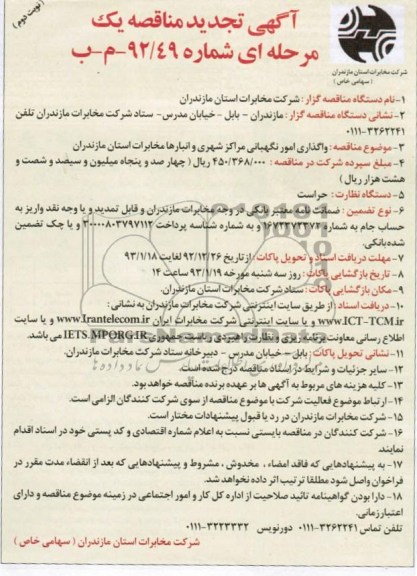 (نوبت دوم)
آگهی تجدید مناقصه یک
مرحله ای شماره ۹۲/۴۹-م-ب
شرکت مخابرات استان مازندران
(سهامی خاص)
۱-نام دستگاه مناقصه گزار: شرکت مخابرات استان مازندران
۲- نشانی دستگاه مناقصه گزار: مازندران - بابل - خیابان مدرس- ستاد شرکت مخابرات مازندران تلفن
۰۱۱۱-۳۲۶۲۲۴۱
۳- موضوع مناقصه: واگذاری امور نگهبانی مراکز شهری و انبارها مخابرات استان مازندران
۴- مبلغ سپرده شرکت در مناقصه : ۴۵۰/۳۶۸/۰۰۰ ریال (چهار صد و پنجاه میلیون و سیصد و شصت و
هشت هزار ریال)
۵- دستگاه نظارت: حراست
۶- نوع تضمین : ضمانت نامه معتبر بانکی در وجه مخابرات مازندران و قابل تمدید و یا وجه نقد واریز به
حساب جام به شماره ۱۶۷۳۲۷۳۲۷۴ و به شماره شناسه پرداخت ۳۰۰۰۰۸۰۳۷۹۷۱۱۲ و یا چک تضمین
شده بانکی.
۷- مهلت دریافت اسناد و تحویل پاکات : از تاریخ ۹۲/۱۲/۲۶ لغایت ۹۳/۱/۱۸
۸- تاریخ بازگشایی پاکات : روز سه شنبه مورخه ۹۳/۱/۱۹ ساعت ۱۴
۹- مکان بازگشایی پاکات : ستاد شرکت مخابرات استان مازندران.
۱۰- دریافت اسناد : از طریق سایت اینترنتی شرکت مخابرات مازندران به نشانی:
www.ICT-TCM.ir و یا سایت اینترنتی شرکت مخابرات ایران www.Irantelecom.ir و یا سایت
اطلاع رسانی معاونت برنامه ریزی و نظارت راهبردی ریاست جمهوری IETS.MPORG.IR می باشد.
۱۱- نشانی تحویل پاکات : بابل - خیابان مدرس - دبیرخانه ستاد شرکت مخابرات مازندران.
۱۲- سایر جزئیات و شرایط در اسناد مناقصه درج شده است.
۱۳- کلیه هزینه های مربوط به آگهی ها بر عهده برنده مناقصه خواهد بود.
۱۴- ارتباط موضوع فعالیت شرکت با موضوع مناقصه از سوی شرکت کنندگان الزامی است.
۱۵- شرکت مخابرات مازندران در رد یا قبول پیشنهادات مختار است.
۱۶- شرکت کنندگان در مناقصه بایستی نسبت به اعلام شماره اقتصادی و کد پستی خود در اسناد اقدام
نمایند.
۱۷- به پیشنهادهایی که فاقد امضاء ، مخدوش ، مشروط و پیشنهادهایی که بعد از انقضاء مدت مقرر در
فراخوان واصل شود مطلقا ترتیب اثر داده نخواهد شد.
۱۸- دارا بودن گواهینامه تائید صلاحیت از اداره کل کار و امور اجتماعی در زمینه موضوع مناقصه و دارای
اعتبار زمانی.
تلفن تماس ۳۲۶۲۲۴۱-۰۱۱۱ دورنویس ۳۲۲۳۳۳۲-۰۱۱۱
شرکت مخابرات استان مازندران (سهامی خاص)